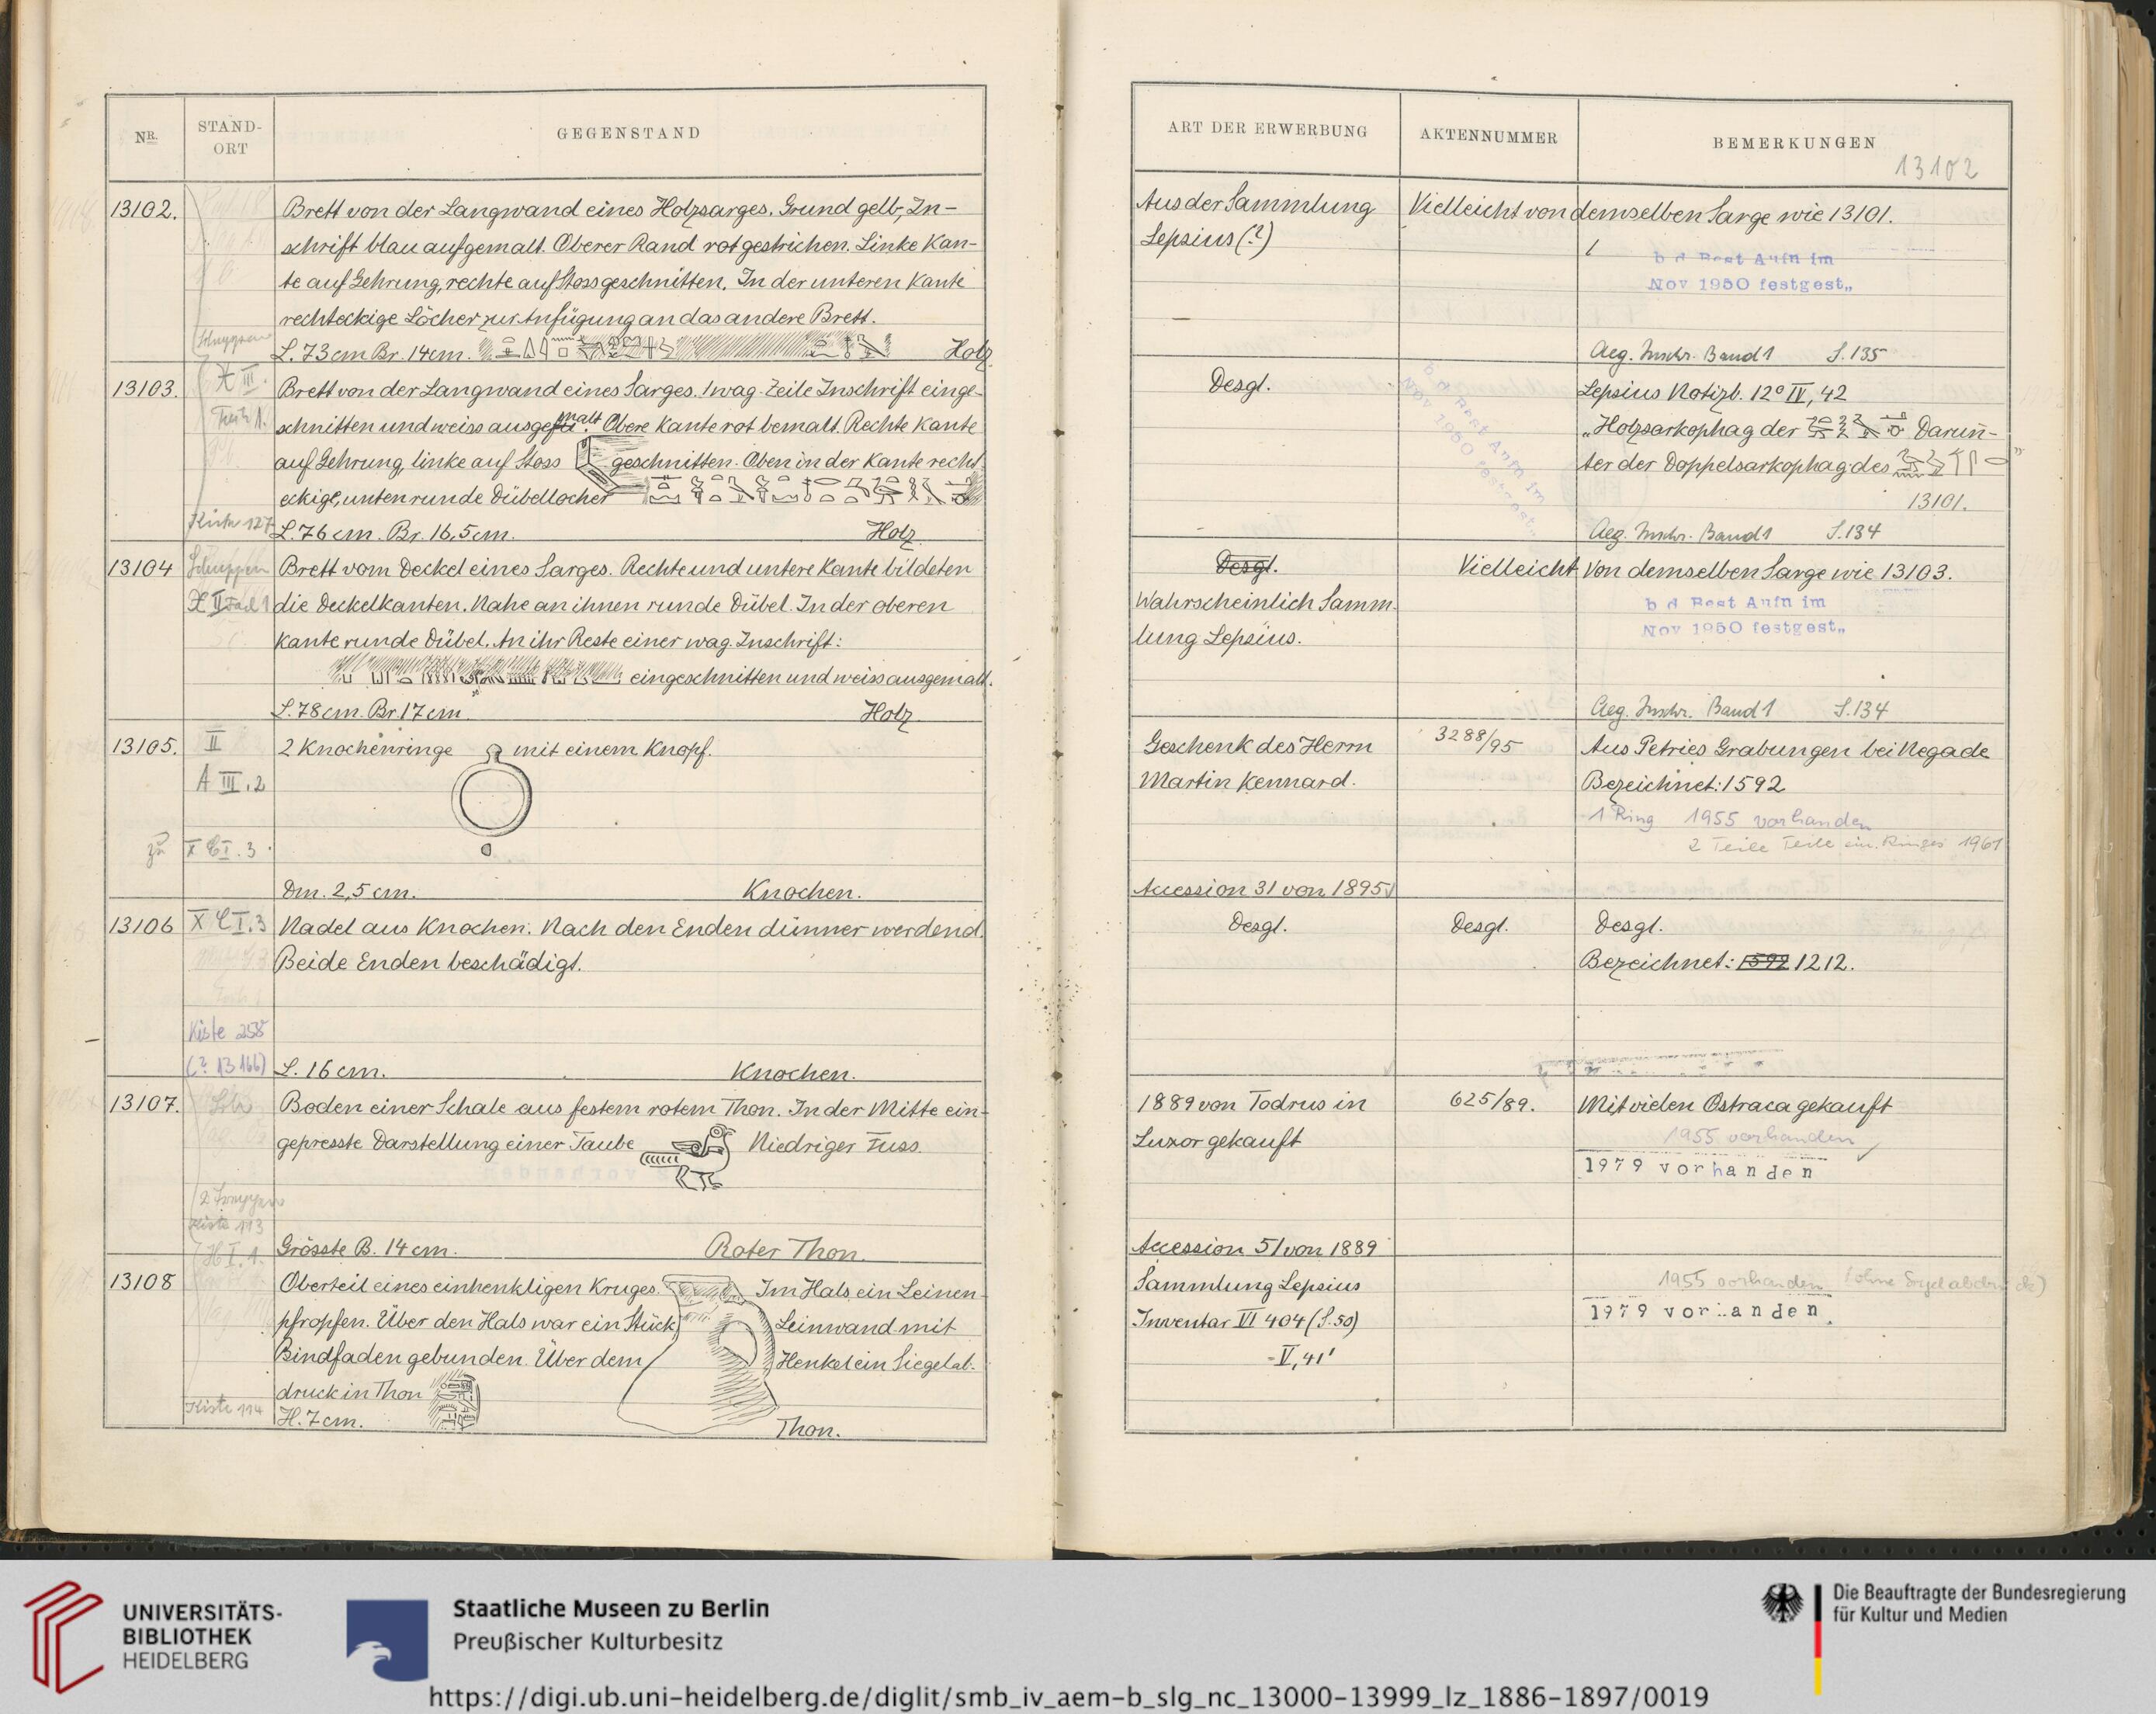 NR.
STAND-
ORT
GEGENSTAND
13102.
Brett von der Langwand eines Holzsarges. Grund gelb, In-
schrift blau aufgemalt. Oberer Rand rot gestrichen. Linke Kan-
te auf Gehrung, rechte auf Stoss geschnitten. In der unteren Kante
rechteckige Löcher zur Anfügung an das andere Brett.
L. 73 cm Br. 14 cm. Holz
13103.
Brett von der Langwand eines Sarges. 1 wag. Zeile Inschrift einge-
schnitten und weiss ausgemalt. Obere Kante rot bemalt. Rechte Kante
auf Gehrung, linke auf Stoss geschnitten. Oben in der Kante recht-
eckige, unten runde Dübellöcher
L. 76 cm. Br. 16,5 cm. Holz
13104
Schuppen
Brett vom Deckel eines Sarges. Rechte und untere Kante bildeten
die Deckelkanten. Nahe an ihnen runde Dübel. In der oberen
Kante runde Dübel. An ihr Reste einer wag. Inschrift:
eingeschnitten und weiss ausgemalt.
L. 78 cm. Br. 17 cm. Holz
13105. II
2 Knochenringe mit einem Knopf.
A III.2
zu X C I.3
Dm. 2,5 cm. Knochen.
13106 X C I.3
Nadel aus Knochen. Nach den Enden dünner werdend.
Beide Enden beschädigt.
Kiste 258
(? 13166) L. 16 cm. Knochen.
13107.
Boden einer Schale aus festem rotem Thon. In der Mitte ein-
gepresste Darstellung einer Taube Niedriger Fuss.
Kiste 113
Grösste B. 14 cm. Roter Thon.
13108
Oberteil eines einhenkligen Kruges. Im Hals ein Leinen-
pfropfen. Über den Hals war ein Stück Leinwand mit
Bindfaden gebunden. Über dem Henkel ein Siegelab-
druck in Thon
Kiste 114 H. 7 cm. Thon.
ART DER ERWERBUNG
AKTENNUMMER
BEMERKUNGEN
13102
Aus der Sammlung Vielleicht von demselben Sarge wie 13101.
Lepsius (?)
b d Best Aufn im
Nov 1950 festgest.
Aeg. Inschr. Band 1 S. 135
Desgl.
b d Best Aufn im
Nov 1950 festgest.
Lepsius Notizb. 12° IV, 42
"Holzsarkophag der Darun-
ter der Doppelsarkophag des "
13101.
Aeg. Inschr. Band 1 S. 134
Desgl. Vielleicht von demselben Sarge wie 13103.
Wahrscheinlich Samm-
lung Lepsius.
b d Best Aufn im
Nov 1950 festgest.
Aeg. Inschr. Band 1 S. 134
Geschenk des Herrn 3288/95 Aus Petries Grabungen bei Negade
Martin Kennard. Bezeichnet: 1592
1 Ring 1955 vorhanden
2 Teile ein. Ringes 1961
Accession 31 von 1895
Desgl. Desgl. Desgl.
Bezeichnet: 1592 1212.
1889 von Todrus in 625/89. Mit vielen Ostraca gekauft
Luxor gekauft
1955 vorhanden
1979 vorhanden
Accession 51 von 1889
Sammlung Lepsius
1955 vorhanden (ohne Siegelabdruck)
Inventar VI 404 (S. 50)
1979 vorhanden.
= V, 41'
UNIVERSITÄTS-
BIBLIOTHEK
HEIDELBERG
Staatliche Museen zu Berlin
Preußischer Kulturbesitz
Die Beauftragte der Bundesregierung
für Kultur und Medien
https://digi.ub.uni-heidelberg.de/diglit/smb_iv_aem-b_slg_nc_13000-13999_lz_1886-1897/0019